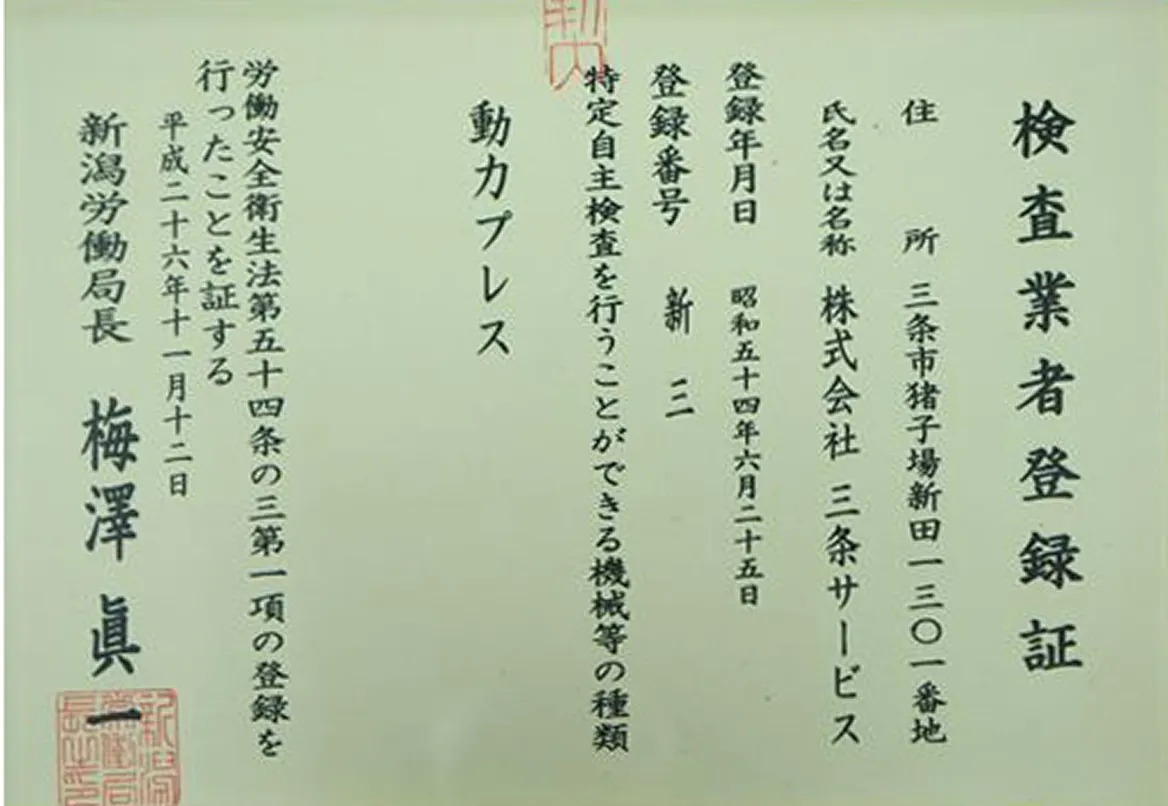 検査業者登録証
住所 三条市猪子場新田一三〇一番地
氏名又は名称 株式会社 三条サービス
登録年月日 昭和五十四年六月二十五日
登録番号 新三
特定自主検査を行うことができる機械等の種類
動力プレス
労働安全衛生法第五十四条の三第一項の登録を
行ったことを証する
平成二十六年十一月十二日
新潟労働局長 梅澤眞一